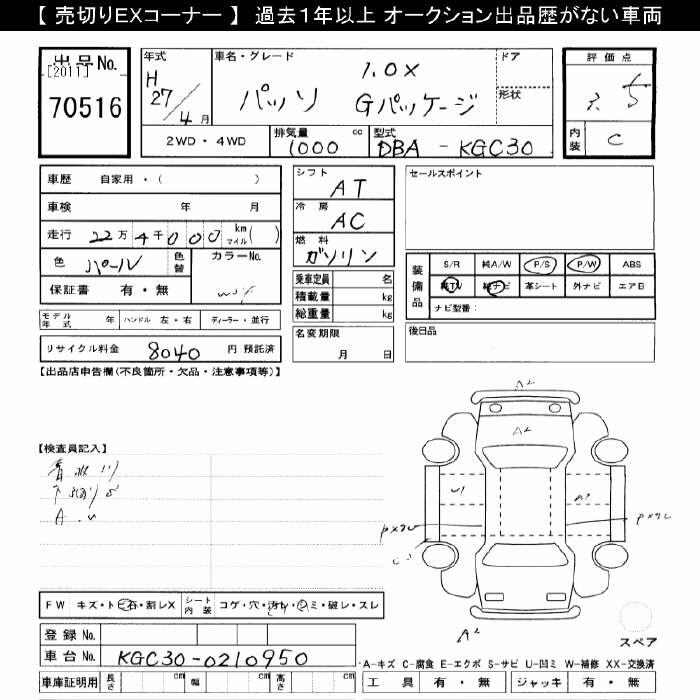 【 売切りEXコーナー 】 過去1年以上 オークション出品歴がない車両
出品No.
[2011]
70516
年式
H
27/4月
車名・グレード
パッソ
1.0X
Gパッケージ
ドア
形状
評価点
3.5
内装
C
2WD・4WD
排気量
1000
cc
型式
DBA - KGC30
車歴 自家用・( )
車検 年 月
走行 22万4千000 km マイル ( )
色 パール
色替
カラーNo.
保証書 有・無
モデル年式 年
ハンドル 左・右
ディーラー・並行
リサイクル料金 8040 円 預託済
シフト
AT
冷房
AC
燃料
ガソリン
乗車定員 名
積載量 kg
総重量 kg
名変期限
月 日
セールスポイント
装備品
S/R 純A/W P/S P/W ABS
純TV 純ナビ 革シート 外ナビ エアB
ナビ型番:
後日品
【出品店申告欄(不良箇所・欠品・注意事項等)】
【検査員記入】
A2
A2
U1
A1
A2
FW キズ・トビ石・割レX
シート内装
コゲ・穴・汚レ・シミ・破レ・スレ
登録No.
車台No. KGC30-0210950
車庫証明用 長さ cm 幅 cm 高さ cm
スペア
A-キズ C-腐食 E-エクボ S-サビ U-凹ミ W-補修 XX-交換済
工具 有・無 ジャッキ 有・無